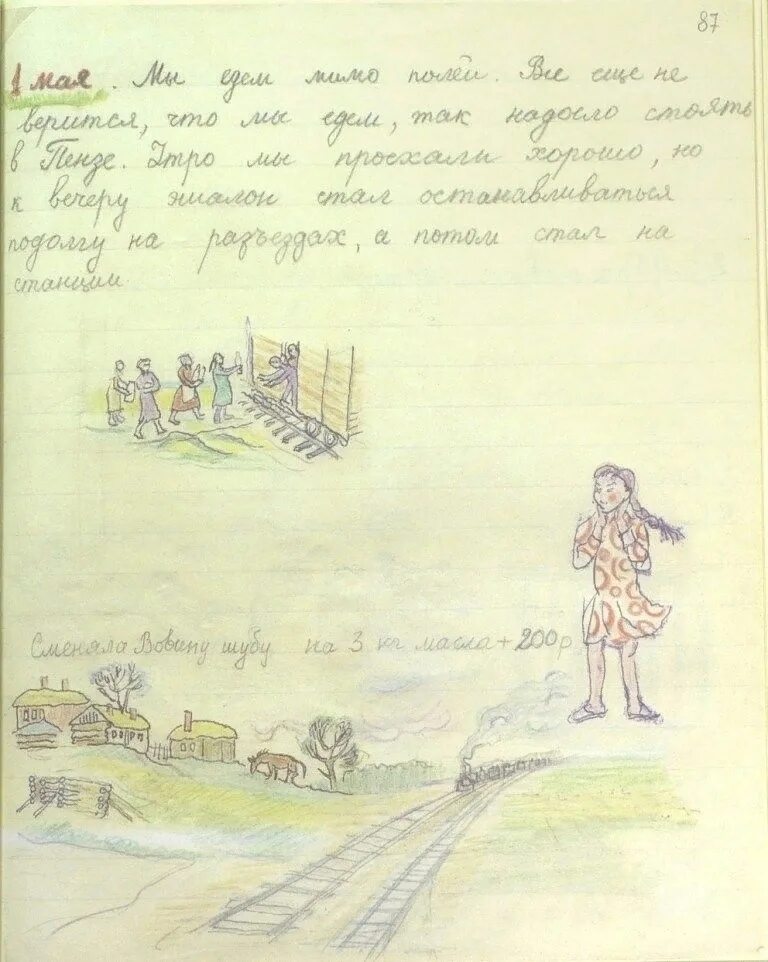 87
1 мая. Мы едем мимо полей. Все еще не
верится, что мы едем, так надоело стоять
в Пензе. Утро мы проехали хорошо, но
к вечеру эшалон стал останавливаться
подолгу на разъездах, а потом стал на
станции.
Сменяла Вовину шубу на 3 кг масла + 200 р